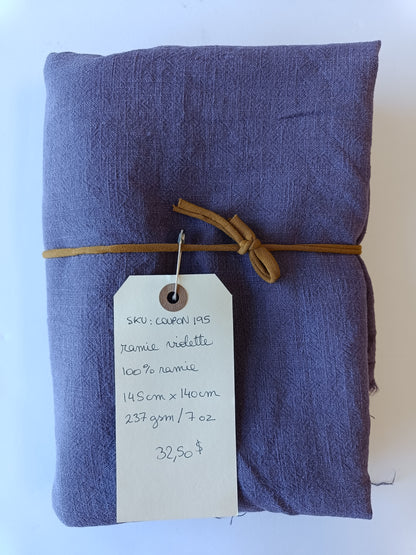 SKU: COUPON 195
ramie violette
100% ramie
145cm x 140cm
237 gsm / 7 oz
32,50 $